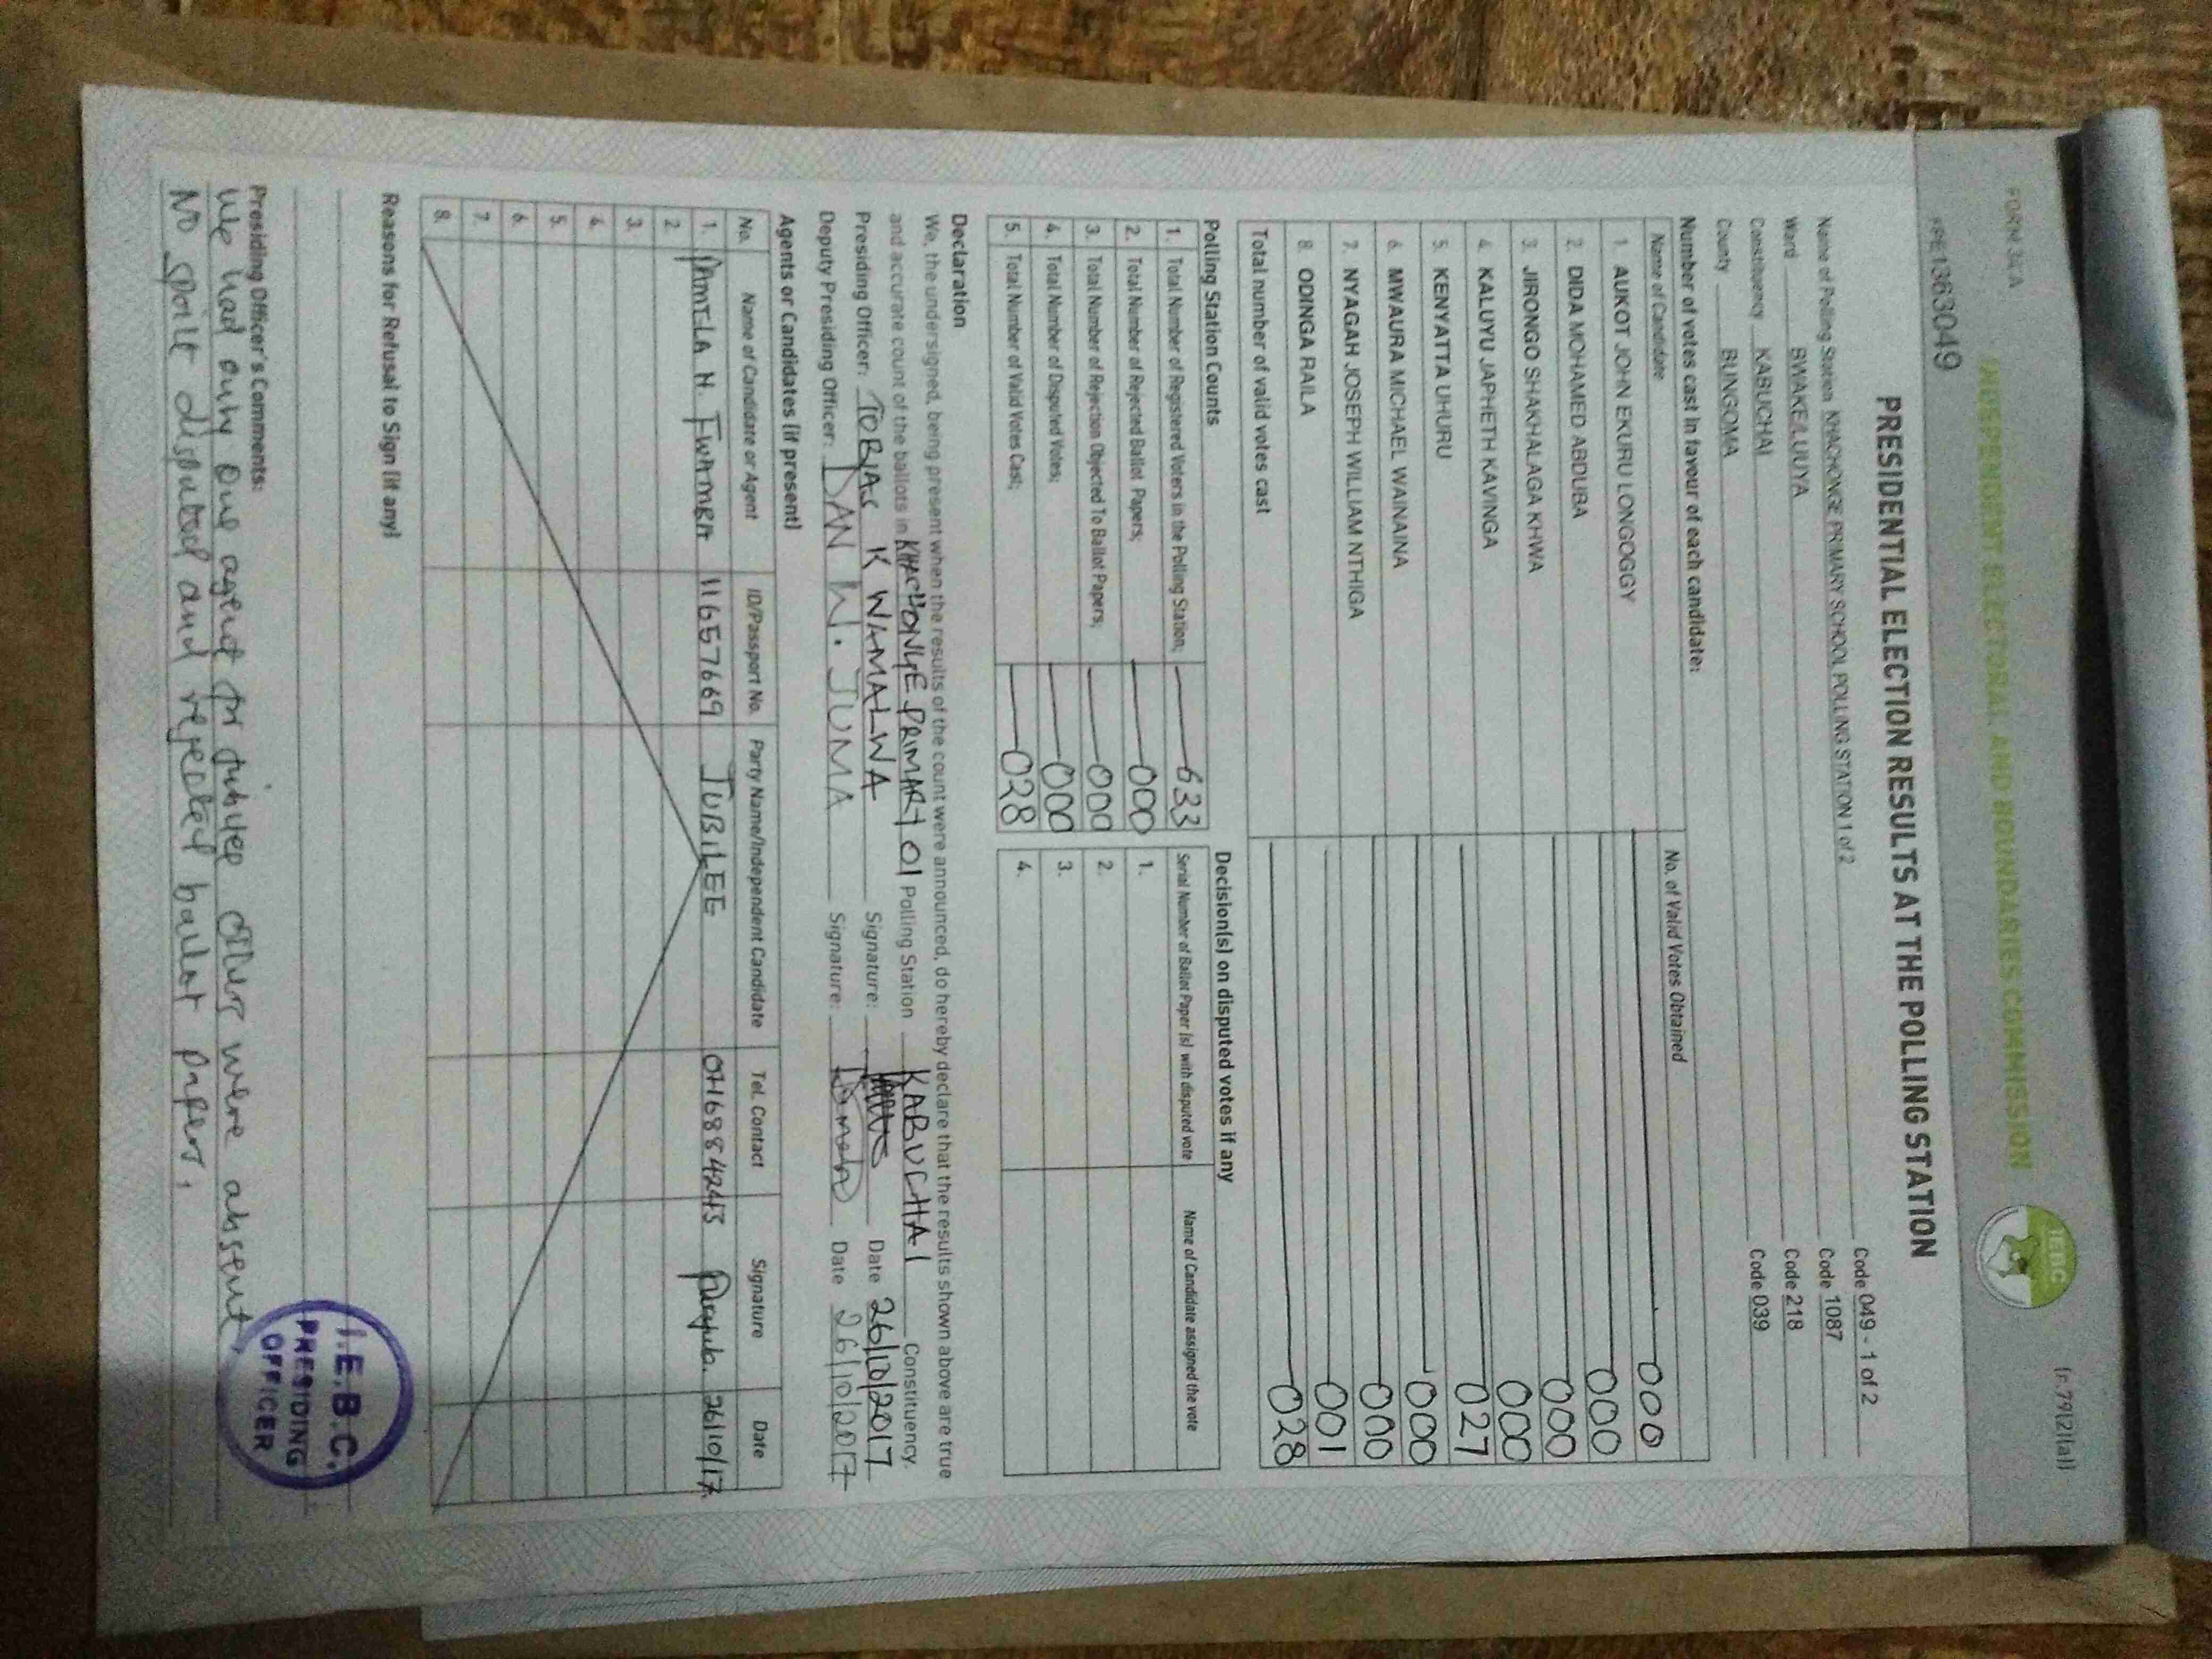 FORM 34A
(r.79(2)(a))
INDEPENDENT ELECTORAL AND BOUNDARIES COMMISSION
IEBC
PRE1363049
PRESIDENTIAL ELECTION RESULTS AT THE POLLING STATION
Name of Polling Station KHACHONGE PRIMARY SCHOOL POLLING STATION 1 of 2 Code 049 - 1 of 2
Ward BWAKE/LUUYA Code 1087
Constituency KABUCHAI Code 218
County BUNGOMA Code 039
Number of votes cast in favour of each candidate:
Name of Candidate No. of Valid Votes Obtained
1. AUKOT JOHN EKURU LONGOGGY 000
2. DIDA MOHAMED ABDUBA 000
3. JIRONGO SHAKHALAGA KHWA 000
4. KALUYU JAPHETH KAVINGA 000
5. KENYATTA UHURU 027
6. MWAURA MICHAEL WAINAINA 000
7. NYAGAH JOSEPH WILLIAM NTHIGA 000
8. ODINGA RAILA 001
Total number of valid votes cast 028
Polling Station Counts
1. Total Number of Registered Voters in the Polling Station; 633
2. Total Number of Rejected Ballot Papers; 000
3. Total Number of Rejection Objected To Ballot Papers; 000
4. Total Number of Disputed Votes; 000
5. Total Number of Valid Votes Cast; 028
Decision(s) on disputed votes if any
Serial Number of Ballot Paper (s) with disputed vote Name of Candidate assigned the vote
1.
2.
3.
4.
Declaration
We, the undersigned, being present when the results of the count were announced, do hereby declare that the results shown above are true
and accurate count of the ballots in KHACHONGE PRIMARY 01 Polling Station KABUCHAI Constituency.
Presiding Officer: TOBIAS K WAMALWA Signature: Date 26/10/2017
Deputy Presiding Officer: DAN W. JUMA Signature: Date 26/10/2017
Agents or Candidates (if present)
No. Name of Candidate or Agent ID/Passport No. Party Name/Independent Candidate Tel. Contact Signature Date
1. N. 11657669 JUBILEE 0716884243 26/10/17
2.
3.
4.
5.
6.
7.
8.
Reasons for Refusal to Sign (if any)
Presiding Officer's Comments:
We had only one agent for jubilee other were absent,
No spoilt disputed and rejected ballot papers,
I.E.B.C.
PRESIDING
OFFICER